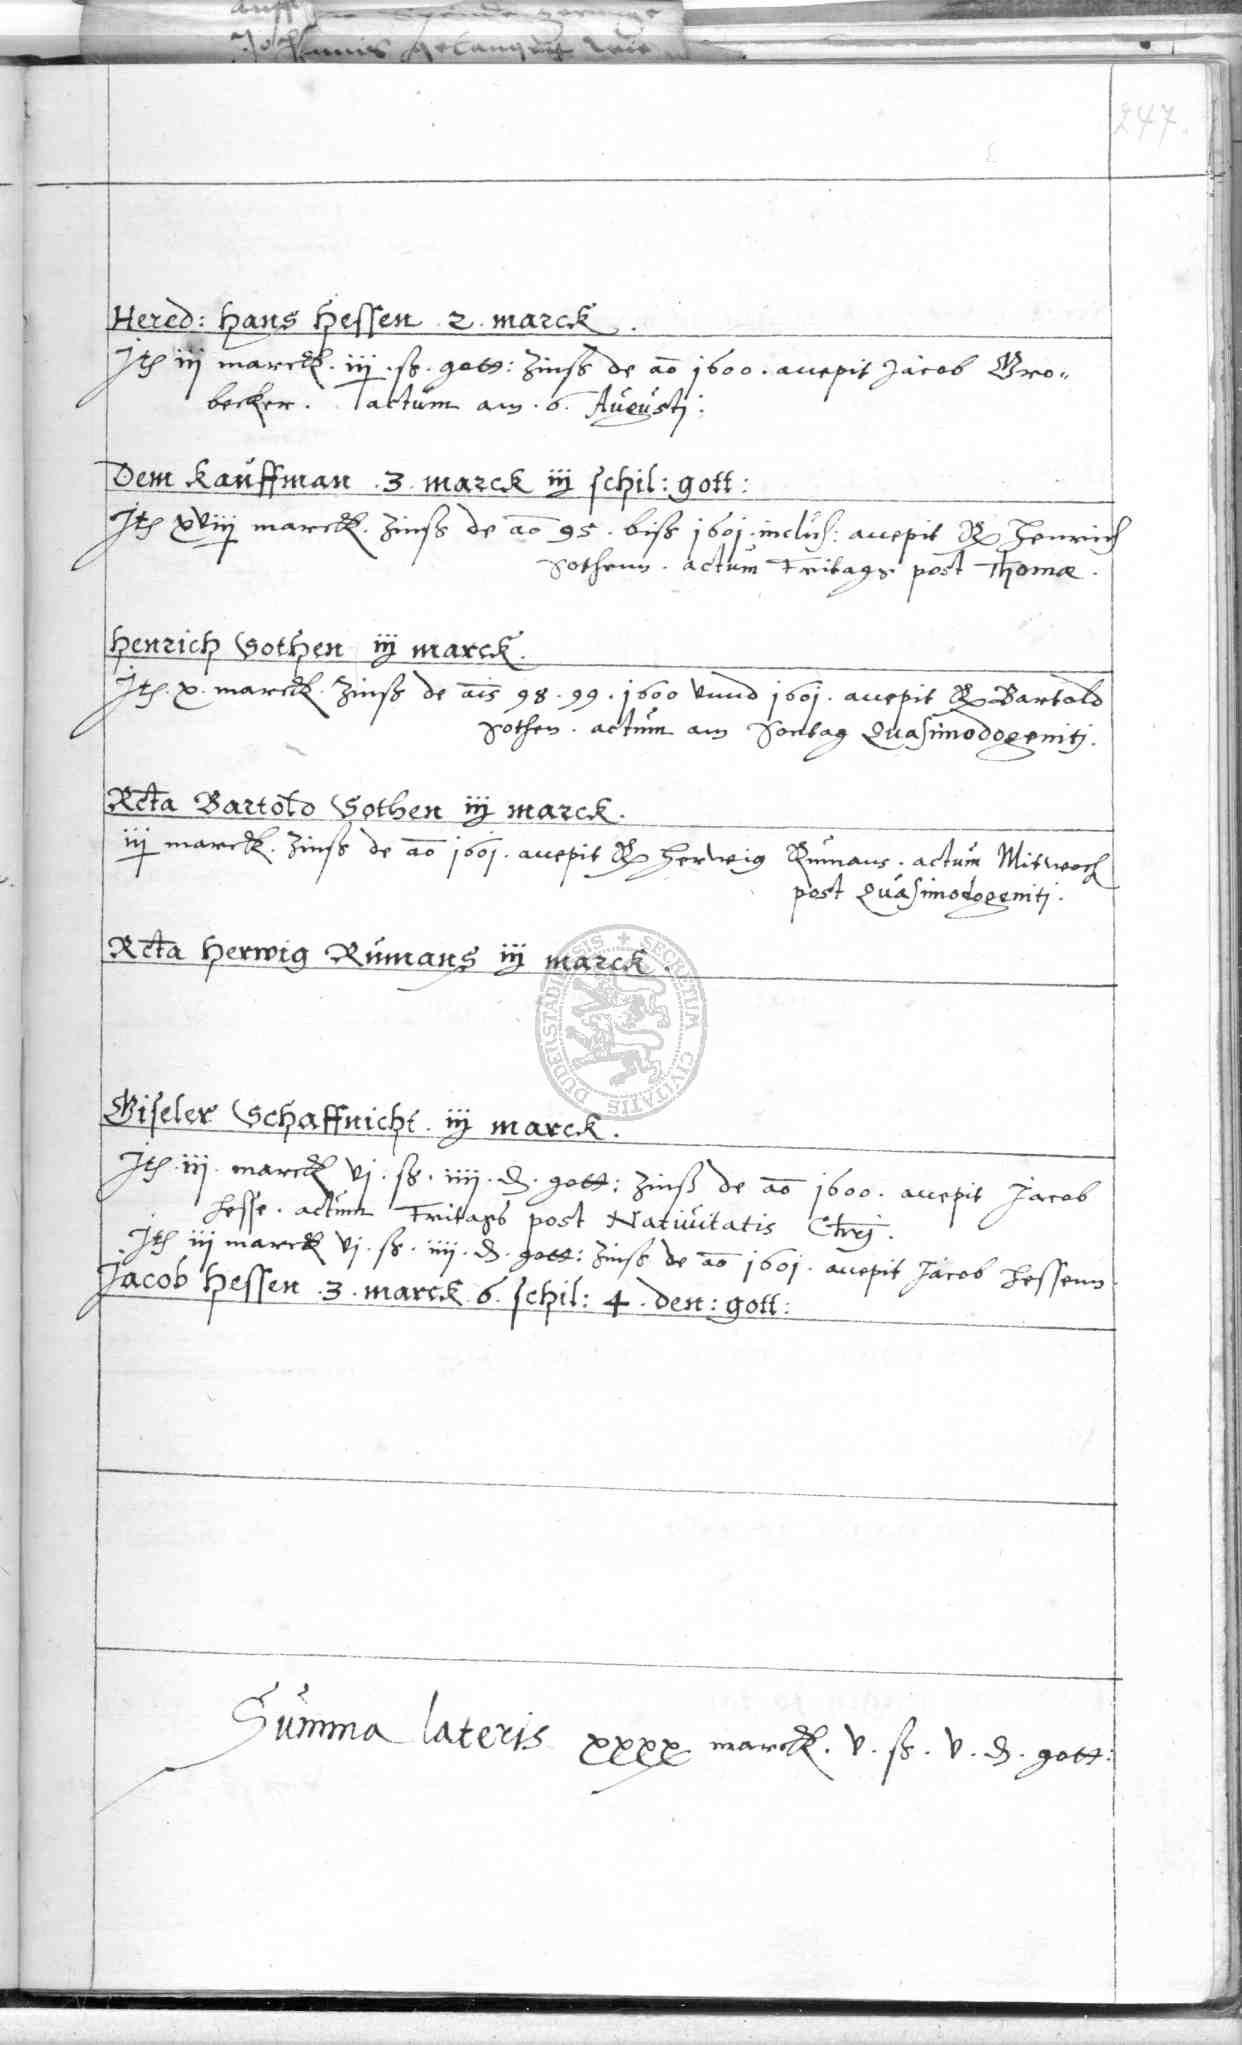 247.
Hered: Hans Hessen . 2 . marck .
Jtem iij marck . iij . ß . gott: Zinß de ao 1600 . accepit Jacob Gro„
becker . actum am . 6 . Augustj .
Dem Kauffman . 3 . marck iij schil: gott:
Jtem xviij marck . Zinß de ao 95 . biß 1601 . inclus: accepit R Henrich
Sothenn . actum Fritags post Thomæ .
Henrich Sothen iij marck .
Jtem . x . marck . Zinß de ais 98 . 99 . 1600 vnnd 1601 . accepit R Bartold
Sothen . actum am Sontag Quasimodogenitj .
Rcta Bartold Sothen iij marck .
iij marck . Zinß de ao 1601 . accepit R Herwig Rumans . actum Mitwoch
post Quasimodogenitj .
Rcta Herwig Rumans iij marck .
Giseler Schaffnicht . iij marck .
Jtem . iij . marck vj . ß . iiij . d . gott: Zinß de ao 1600 . accepit Jacob
Hesse . actum Fritags post Natiuitatis Chrj .
Jtem iij marck vj . ß . iiij . d . gott: Zinß de ao 1601 . accepit Jacob Hessenn .
Jacob Hessen . 3 . marck 6 . schil: 4 . den: gott:
Summa lateris xxxx marck . v . ß . v . d . gott:
SECRETUM CIVITATIS DUDERSTADIENSIS